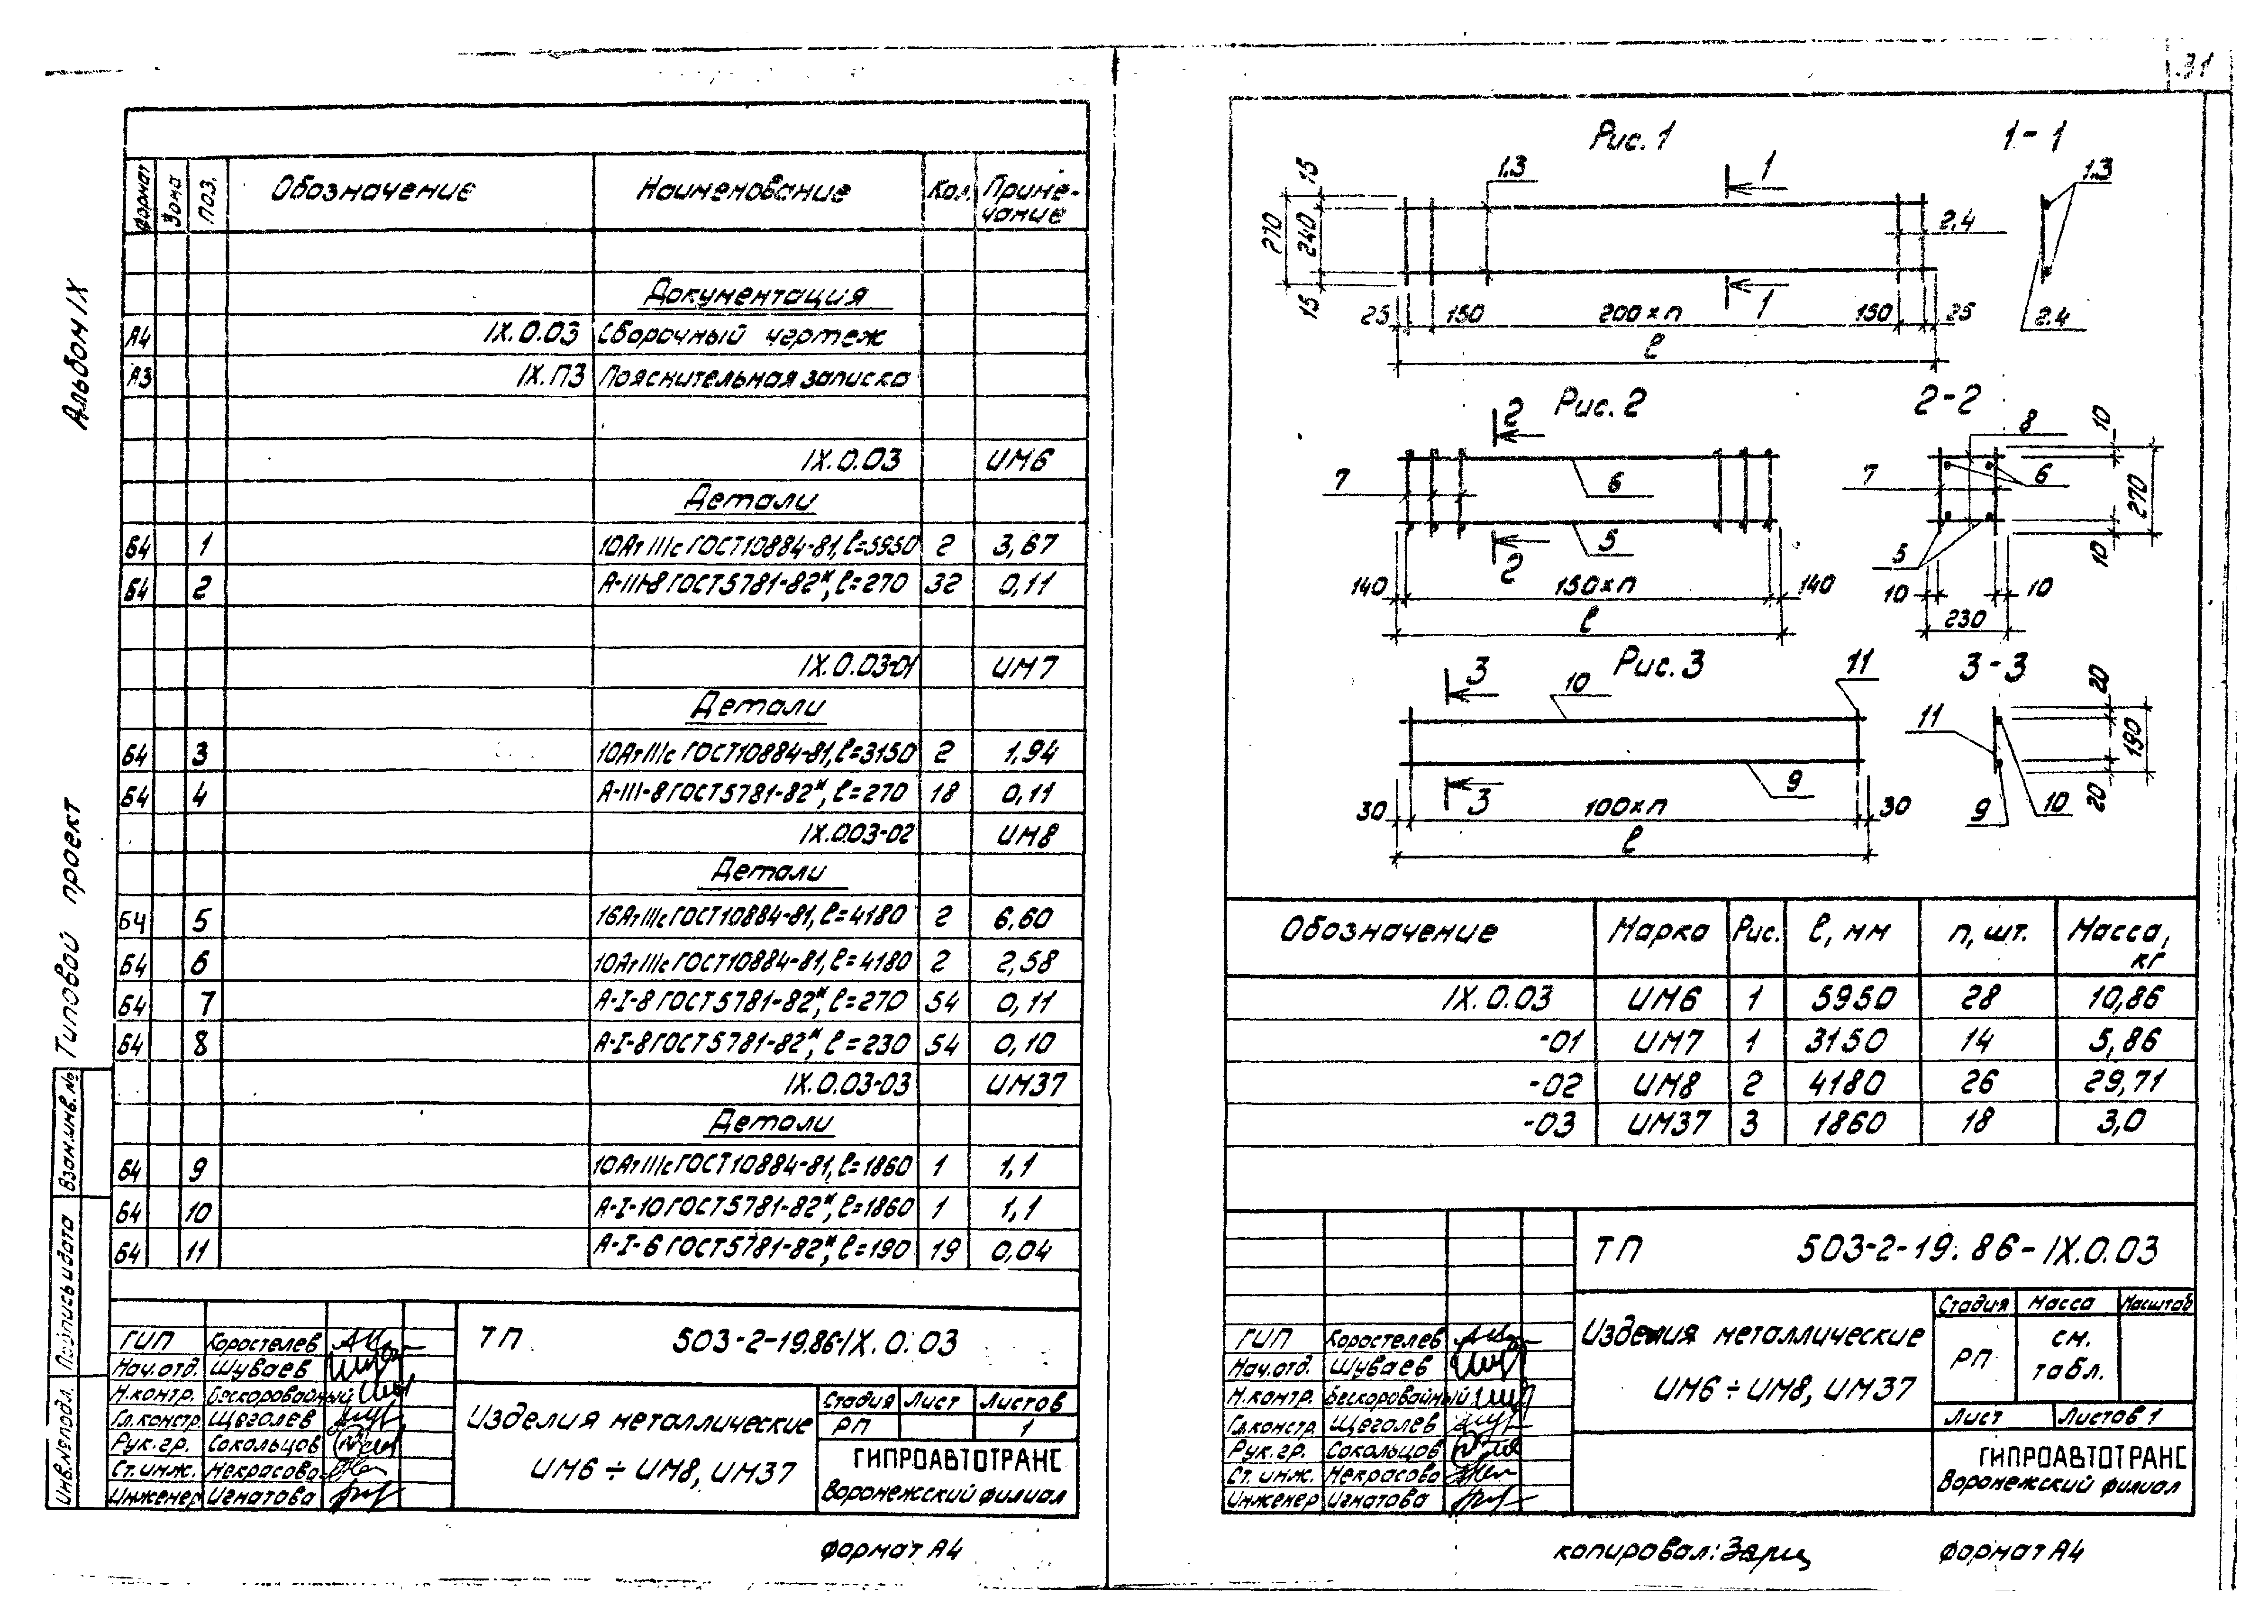 31
Альбом IX
Типовой проект
Взам.инв.№
Подпись и дата
Инв.№подл.
Формат Зона Поз. Обозначение Наименование Кол. Приме-
чание
Документация
А4 IX.0.03 Сборочный чертеж
А3 IX.ПЗ Пояснительная записка
IX.0.03 ИМ6
Детали
Б4 1 10АтIIIс ГОСТ10884-81, ℓ=5950 2 3,67
Б4 2 А-III-8 ГОСТ5781-82*, ℓ=270 32 0,11
IX.0.03-01 ИМ7
Детали
Б4 3 10АтIIIс ГОСТ10884-81, ℓ=3150 2 1,94
Б4 4 А-III-8 ГОСТ5781-82*, ℓ=270 18 0,11
IX.0.03-02 ИМ8
Детали
Б4 5 16АтIIIс ГОСТ10884-81, ℓ=4180 2 6,60
Б4 6 10АтIIIс ГОСТ10884-81, ℓ=4180 2 2,58
Б4 7 А-I-8 ГОСТ5781-82*, ℓ=270 54 0,11
Б4 8 А-I-8 ГОСТ5781-82*, ℓ=230 54 0,10
IX.0.03-03 ИМ37
Детали
Б4 9 10АтIIIс ГОСТ10884-81, ℓ=1860 1 1,1
Б4 10 А-I-10 ГОСТ5781-82*, ℓ=1860 1 1,1
Б4 11 А-I-6 ГОСТ5781-82*, ℓ=190 19 0,04
ГИП Коростелев
Нач.отд. Шуваев
Н.контр. Бескоровайный
Гл.констр. Щеголев
Рук.гр. Сокольцов
Ст.инж. Некрасова
Инженер Игнатова
ТП 503-2-19.86-IX.0.03
Изделия металлические
ИМ6÷ИМ8, ИМ37
Стадия Лист Листов
РП 1
ГИПРОАВТОТРАНС
Воронежский филиал
Формат А4
Рис. 1 1-1
15 1.3 1 1.3
270 240 2.4
15 25 150 200×п 1 150 25 2.4
ℓ
Рис. 2 2-2
2 8 10
7 6 7 6 270
5 5 10
140 150×п 2 140 10 10
ℓ 230
Рис. 3 3-3
3 10 11 20
11 190
9 9 10 20
30 3 100×п 30
ℓ
Обозначение Марка Рис. ℓ, мм п, шт. Масса,
кг
IX.0.03 ИМ6 1 5950 28 10,86
-01 ИМ7 1 3150 14 5,86
-02 ИМ8 2 4180 26 29,71
-03 ИМ37 3 1860 18 3,0
ТП 503-2-19.86-IX.0.03
ГИП Коростелев
Нач.отд. Шуваев
Н.контр. Бескоровайный
Гл.констр. Щеголев
Рук.гр. Сокольцов
Ст.инж. Некрасова
Инженер Игнатова
Изделия металлические
ИМ6÷ИМ8, ИМ37
Стадия Масса Масштаб
РП см.
табл.
Лист Листов 1
ГИПРОАВТОТРАНС
Воронежский филиал
копировал: Зарищ
Формат А4